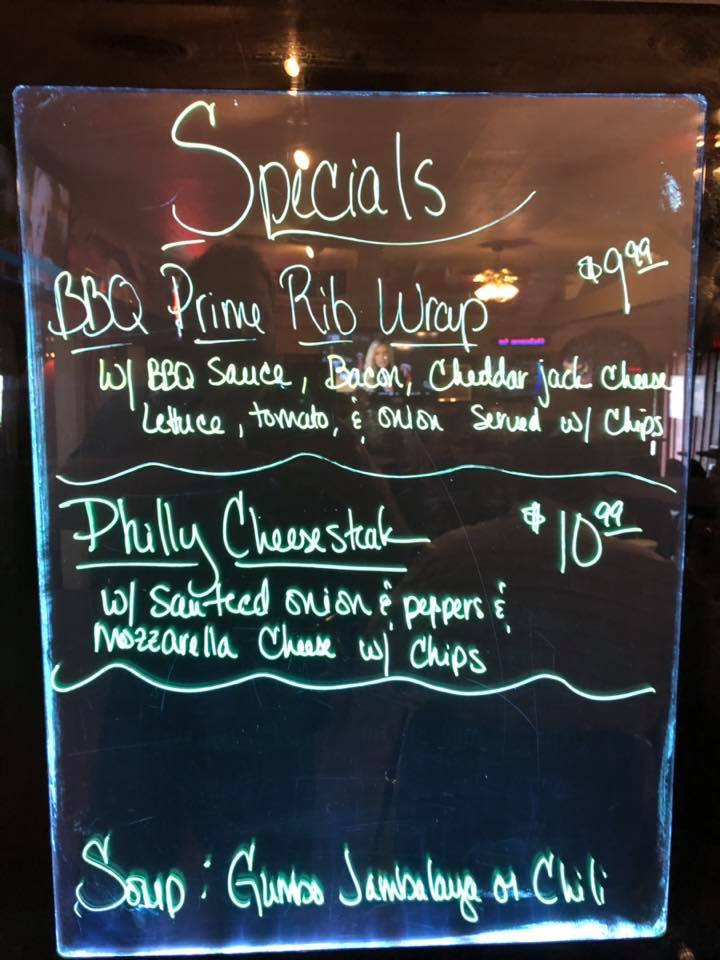 Specials
BBQ Prime Rib Wrap $9.99
w/ BBQ Sauce, Bacon, Cheddar jack Cheese
Lettuce, tomato, & onion Served w/ Chips
Philly Cheesesteak $10.99
w/ Sauteed onion & peppers &
Mozzarella Cheese w/ Chips
Soup: Gumbo Jambalaya or Chili